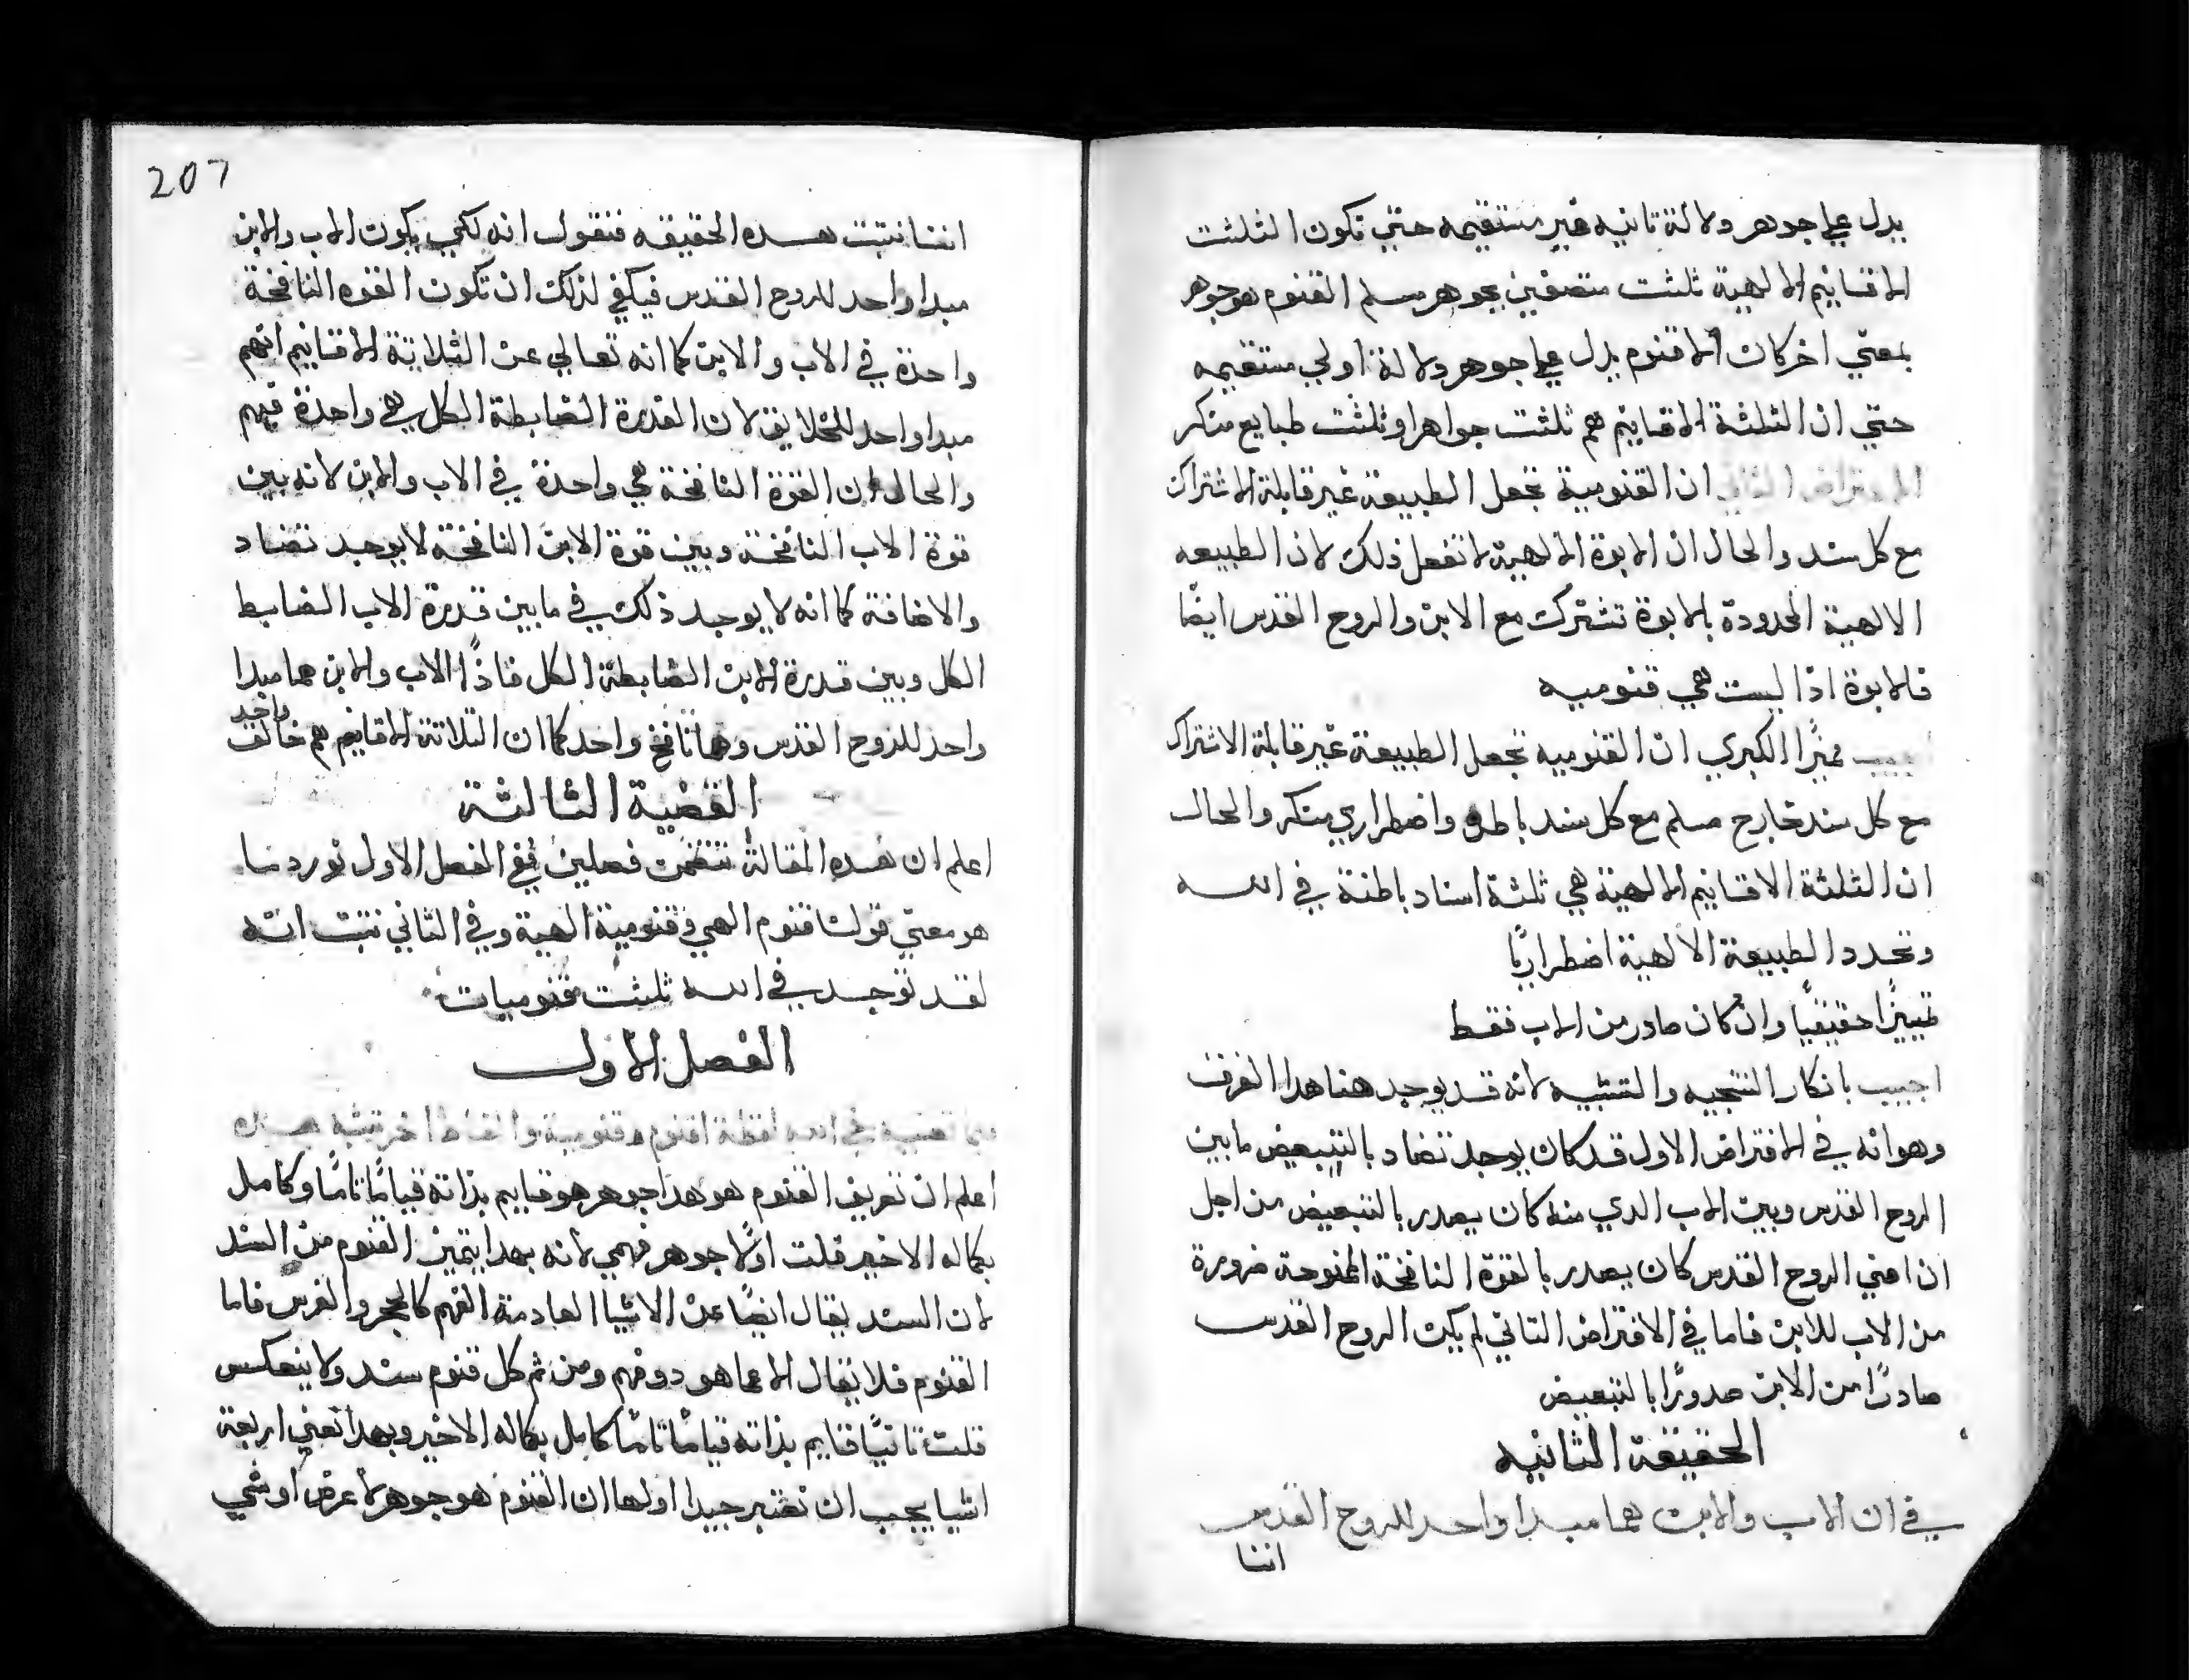 يدل علي جوهر دلالة تانيه غير مستقيمه حتي تكون الثلثت
الاقانيم الالهية ثلثت متصفين بجوهر مسلم القنوم هو جوهر
بمعني اخر كان الاقنوم يدل علي جوهر دلالة اولي مستقيمه
حتي ان الثلثة الاقانيم هم ثلثت جواهر او ثلثت طبايع منكر
الاعتراض الثاني ان القنومية تجعل الطبيعة غير قابلة الاشتراك
مع كل سند والحال ان الابوة الالهية لا تفعل ذلك لان الطبيعه
الالهية المحدودة بالابوة تشترك مع الابن والروح القدس ايضًا
فالابوة اذًا ليست هي قنوميه
اجيب مميزًا الكبري ان القنوميه تجعل الطبيعة غير قابلة الاشتراك
مع كل سند خارج مسلم مع كل سند باطن واضطراري منكر والحال
ان الثلثة الاقانيم الالهية هي ثلثة اسناد باطنة في الله
وتحدد الطبيعة الالهية اضطراريًا
تمييزًا حقيقيًا وان كان صادر من الاب فقط
اجيب بانكار النتجيه والتشبيه لانه قد يوجد هنا هدا الفرق
وهو انه في الافتراض الاول قد كان يوجد تضاد بالتبعيض ما بين
الروح القدس وبين الاب الدي منه كان يصدر بالتبعيض من اجل
ان اعني الروح القدس كان يصدر بالقوة النافخة الممنوحة ضرورة
من الاب للابن فاما في الافتراض التاني لم يكن الروح القدس
صادرًا من الابن صدورًا بالتبعيض
الحقيقة الثانيه
في ان الاب والابن هما مبدا واحد للروح القدس
اننا
207
اننا نثبت هده الحقيقه فنقول انه لكي يكون الاب والابن
مبدا واحد للروح القدس فيكفي لذلك ان تكون القوه النافخة
واحدة في الاب والابن كما انه تعالي عن الثلاتة الاقانيم انهم
مبدا واحد للخلايق لان القدرة الضابطة الكل هي واحدة فيهم
والحال ان القوة النافخة هي واحدة في الاب والابن لانه بين
قوة الاب النافخة وبين قوة الابن النافخة لا يوجد تضاد
والاضافة كما انه لا يوجد ذلك في ما بين قدرة الاب الضابط
الكل وبين قدرة الابن الضابطة الكل فاذًا الاب والابن هما مبدا
واحد للروح القدس وهما نافخ واحد كما ان التلاتة الاقانيم هم خالق واحد
القضية الثالثة
اعلم ان هده المقالة تتضمن فصلين ففي الفصل الاول نورد ما
هو معني قولنا قنوم الهي وقنومية الهية وفي الثاني نثبت انه
لقد توجد في الله ثلثت قنوميات
الفصل الاول
فيما نعنيه في الله لفظة اقنوم وقنومية والفاظًا اخر شبه هده
اعلم ان تعريف القنوم هو هدا جوهر هو قايم بذاته قيامًا تامًا وكامل
بكماله الاخير قلت اولًا جوهر فهمي لانه بهدا يتميز القنوم من السند
لان السند يقال ايضًا عن الاشيا العادمة الفهم كالحجر والفرس فاما
القنوم فلا يقال الا عما هو دو فهم ومن ثم كل قنوم سند ولا ينعكس
قلت تانيًا قايم بذاته قيامًا تامًا كامل بكماله الاخير وبهدا نعني اربعة
اشيا يجب ان تعتبر جيدا اولها ان القنوم هو جوهر لا عرض او شي